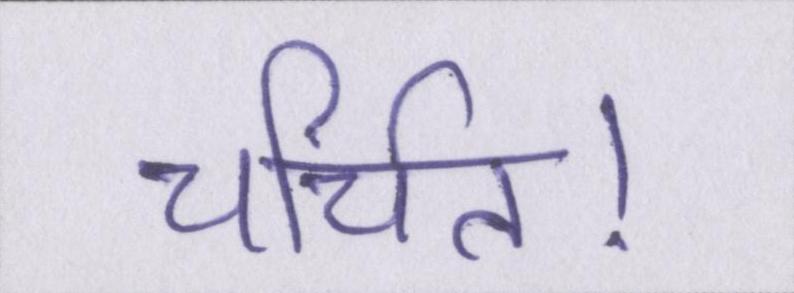 चर्चित!